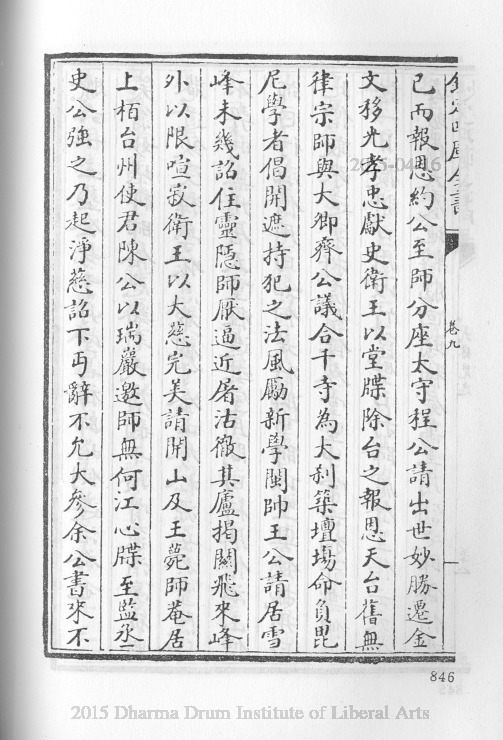 欽定四庫全書
卷九
已而報恩約公至師分座太守程公請出世妙勝遷金
文移光孝忠獻史衛王以堂牒除台之報恩天台舊無
律宗師與大卿齊公議合十寺為大刹築壇場命負毘
尼學者倡開遮持犯之法風勵新學閩帥王公請居雪
峰未幾詔住靈隱師厭逼近屠沽徹其廬揭關飛來峰
外以限喧寂衛王以大慈完美請開山及王薨師菴居
上栢台州使君陳公以瑞巖邀師無何江心牒至監丞
史公強之乃起淨慈詔下丐辭不允大參余公書來不
846
2015-04-16
2015 Dharma Drum Institute of Liberal Arts